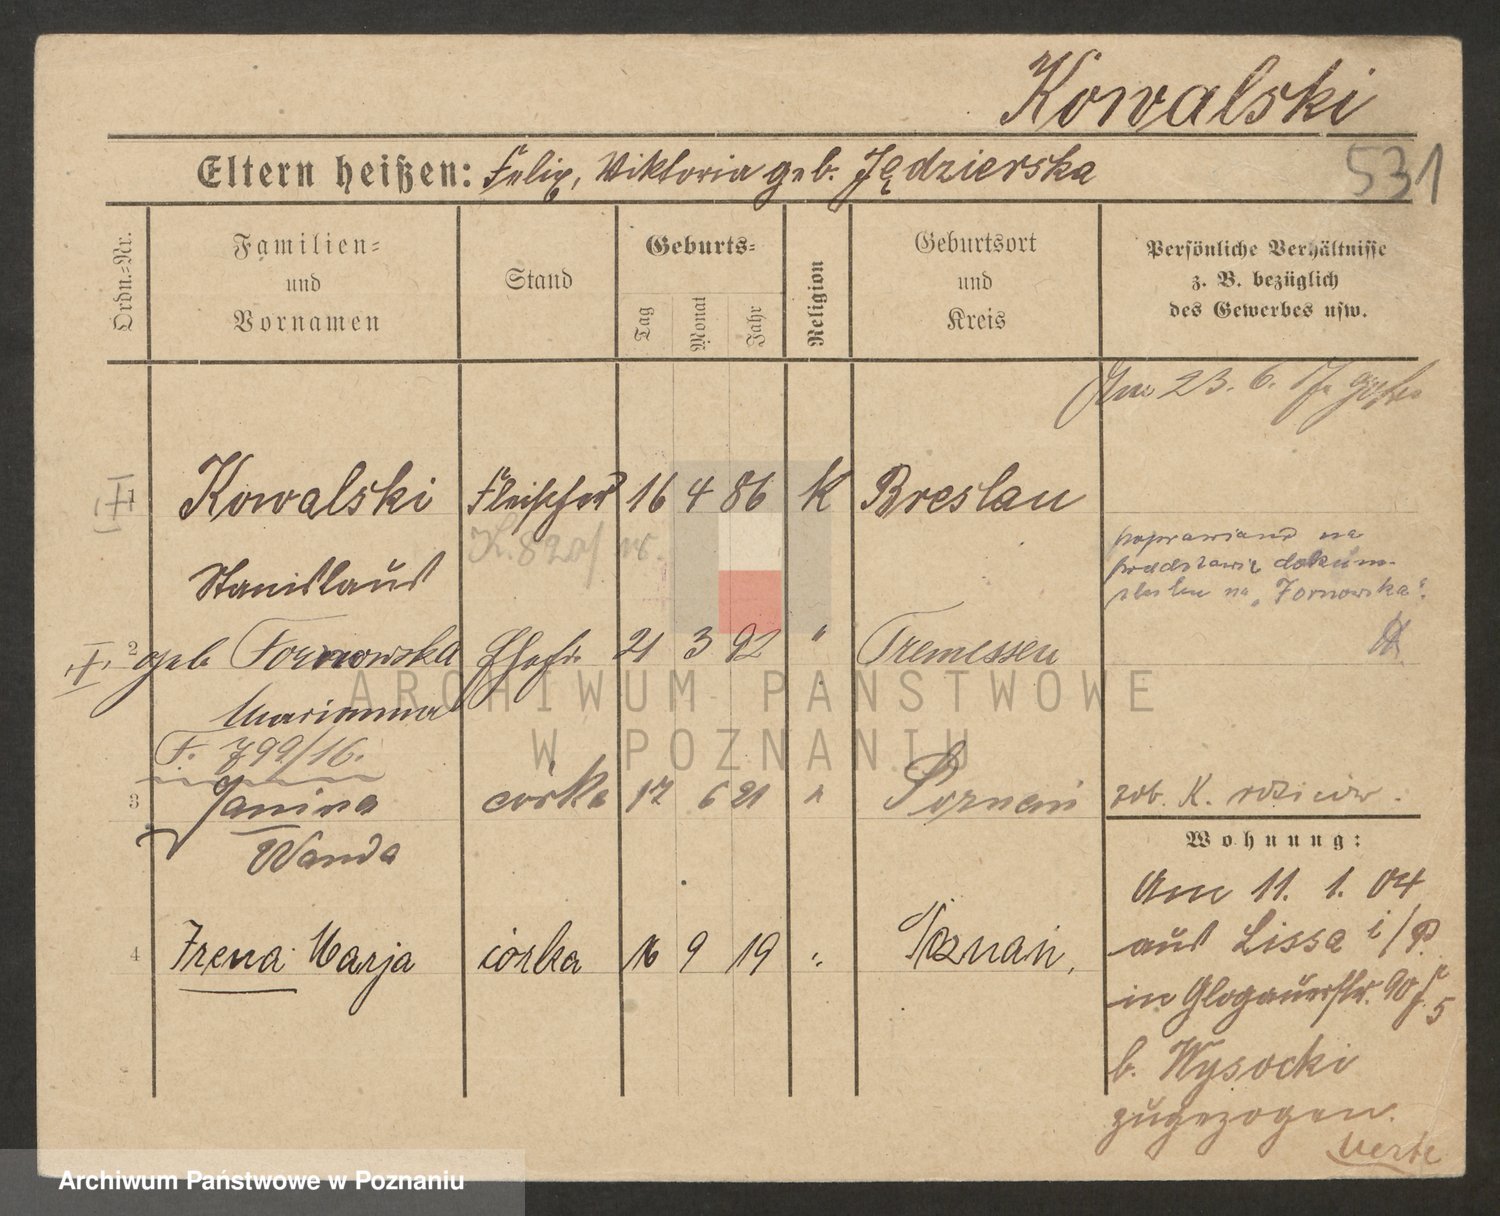 Kowalski
Eltern heißen: Felix, Viktoria geb. Jędzierska
531
Ordn.-Nr.
Familien-
und
Vornamen
Stand
Geburts-
Tag
Monat
Jahr
Religion
Geburtsort
und
Kreis
Persönliche Verhältnisse
z. B. bezüglich
des Gewerbes usw.
23. 6. 17.
1 Kowalski Fleischer 16 4 86 K Breslau
Stanislaus
poprawiono na
podstawie dokum.
na „Fornowska".
2 geb Fornowska Ehefr. 21 3 92 " Tremessen
Marianna
F. 799/16.
3 Janina córka 17 6 21 " Poznań zob. K. rodziców.
Wanda
4 Irena Marja córka 16 9 19 " Poznań,
Wohnung:
Am 11. 1. 04
aus Lissa i/P.
in Glogauerstr. 90
b. Wysocki
zugezogen.
verte
ARCHIWUM PAŃSTWOWE
W POZNANIU
Archiwum Państwowe w Poznaniu